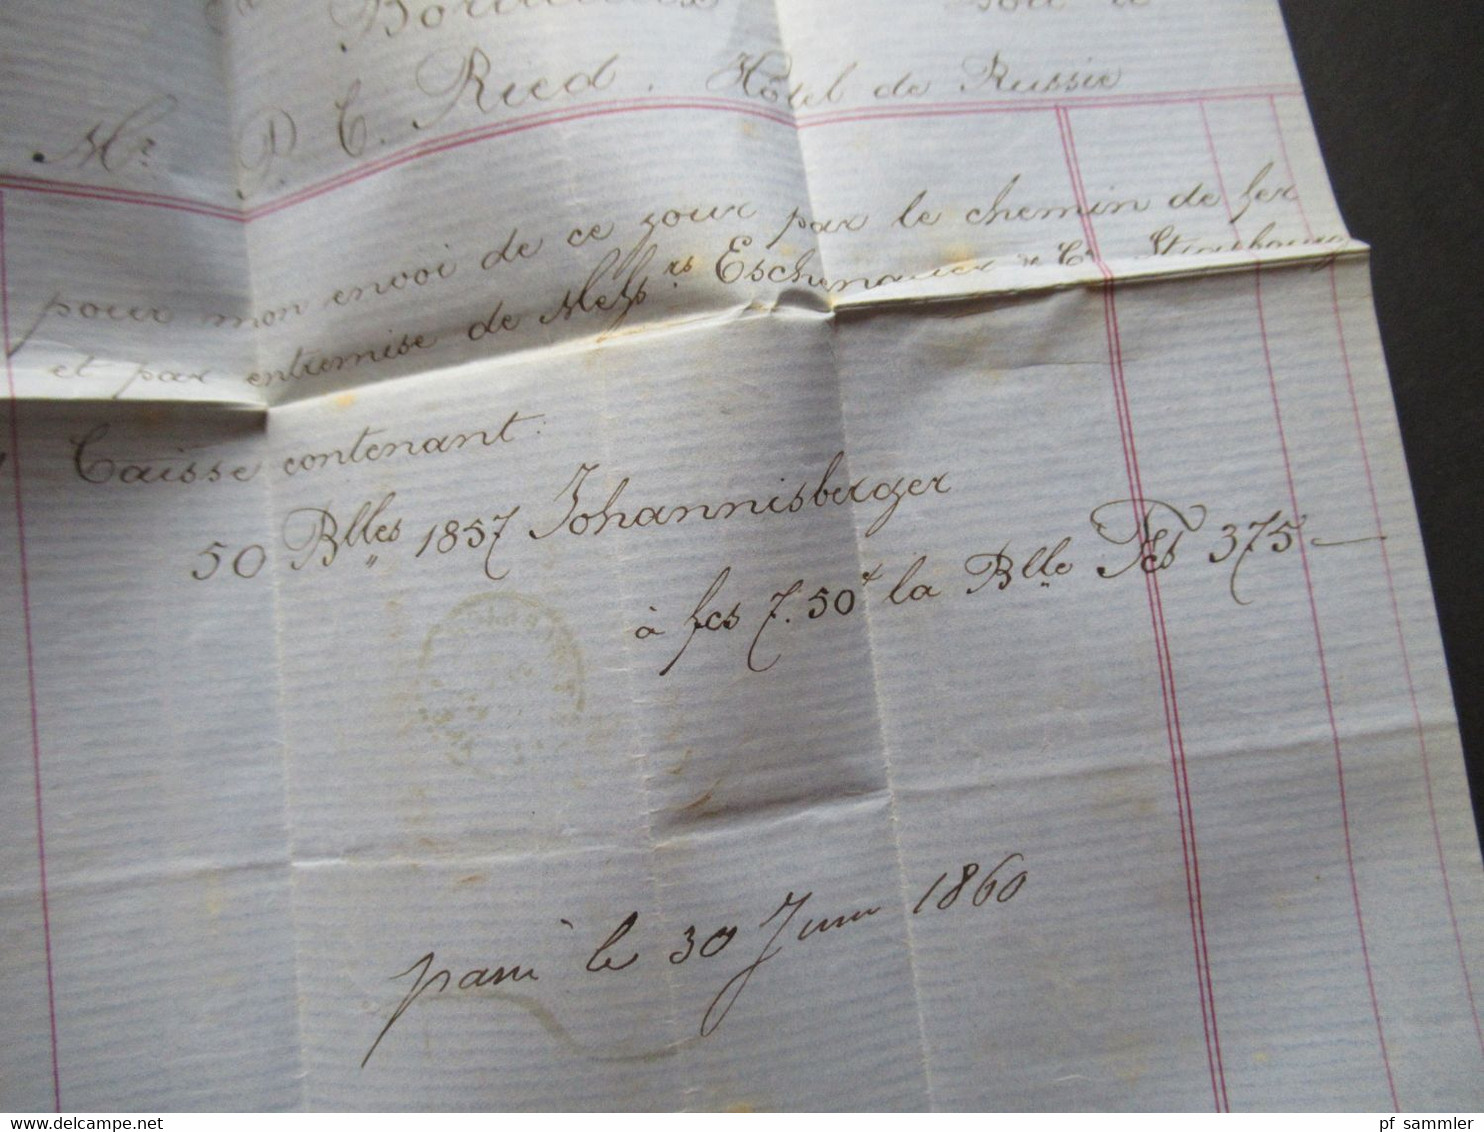 Doit à
Mr. P. C. Ried. Hôtel de Russie
pour mon envoi de ce jour par le chemin de fer
et par entremise de Messrs Eschenauer & Cie Strasbourg
Caisse contenant:
50 Blles 1857 Johannisberger
à fcs 7.50 la Blle Fcs 375 —
le 30 Juin 1860
pf sammler